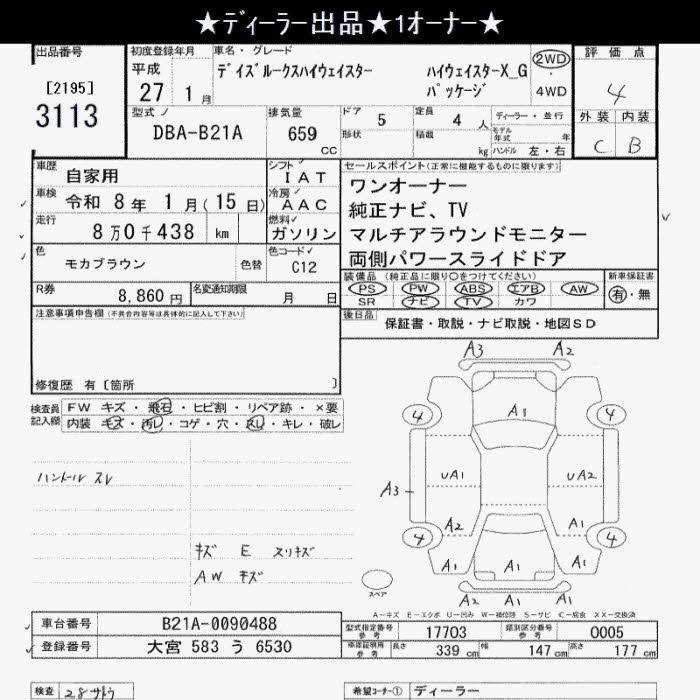 ★ディーラー出品★1オーナー★
出品番号
[2195]
3113
初度登録年月
平成
27 1月
車名・グレード
デイズルークスハイウェイスター ハイウェイスターX_G
パッケージ
2WD
4WD
評価点
4
外装 内装
C B
型式
DBA-B21A
排気量
659
CC
ドア 5
形状
定員 4 人
積載 kg
ディーラー・並行
モデル年式 年
ハンドル 左・右
車歴 自家用
車検 令和 8年 1月(15日)
走行 8万0千438 km
色 モカブラウン 色替
シフト IAT
冷房 AAC
燃料 ガソリン
色コード C12
R券 8,860円
名変通知期限 月 日
セールスポイント(正常に機能するものに限ります)
ワンオーナー
純正ナビ、TV
マルチアラウンドモニター
両側パワースライドドア
装備品(純正品に限り○をつけてください)
PS PW ABS エアB AW
SR ナビ TV カワ
新車保証書
有・無
後日品 保証書・取説・ナビ取説・地図SD
注意事項申告欄(不具合内容等は具体的に記入して下さい)
修復歴 有〔箇所 〕
検査員記入欄
FW キズ・飛石・ヒビ割・リペア跡・×要
内装 キズ・汚レ・コゲ・穴・スレ・キレ・破レ
ハンドル スレ
キズ E スリキズ
AW キズ
A3 A2
A1
4 4
UA1 UA2
A3
A2 A1
4 4
A1 A1 A1
A2 A1 A1
スペア
A-キズ E-エクボ U-凹み W-補修跡 S-サビ C-腐食 XX-交換済
車台番号 B21A-0090488
登録番号 大宮 583 う 6530
型式指定番号 参考 17703
類別区分番号 参考 0005
車庫証明用 参考 長さ 339cm 幅 147cm 高さ 177cm
検査 28サトウ
希望コーナー① ディーラー